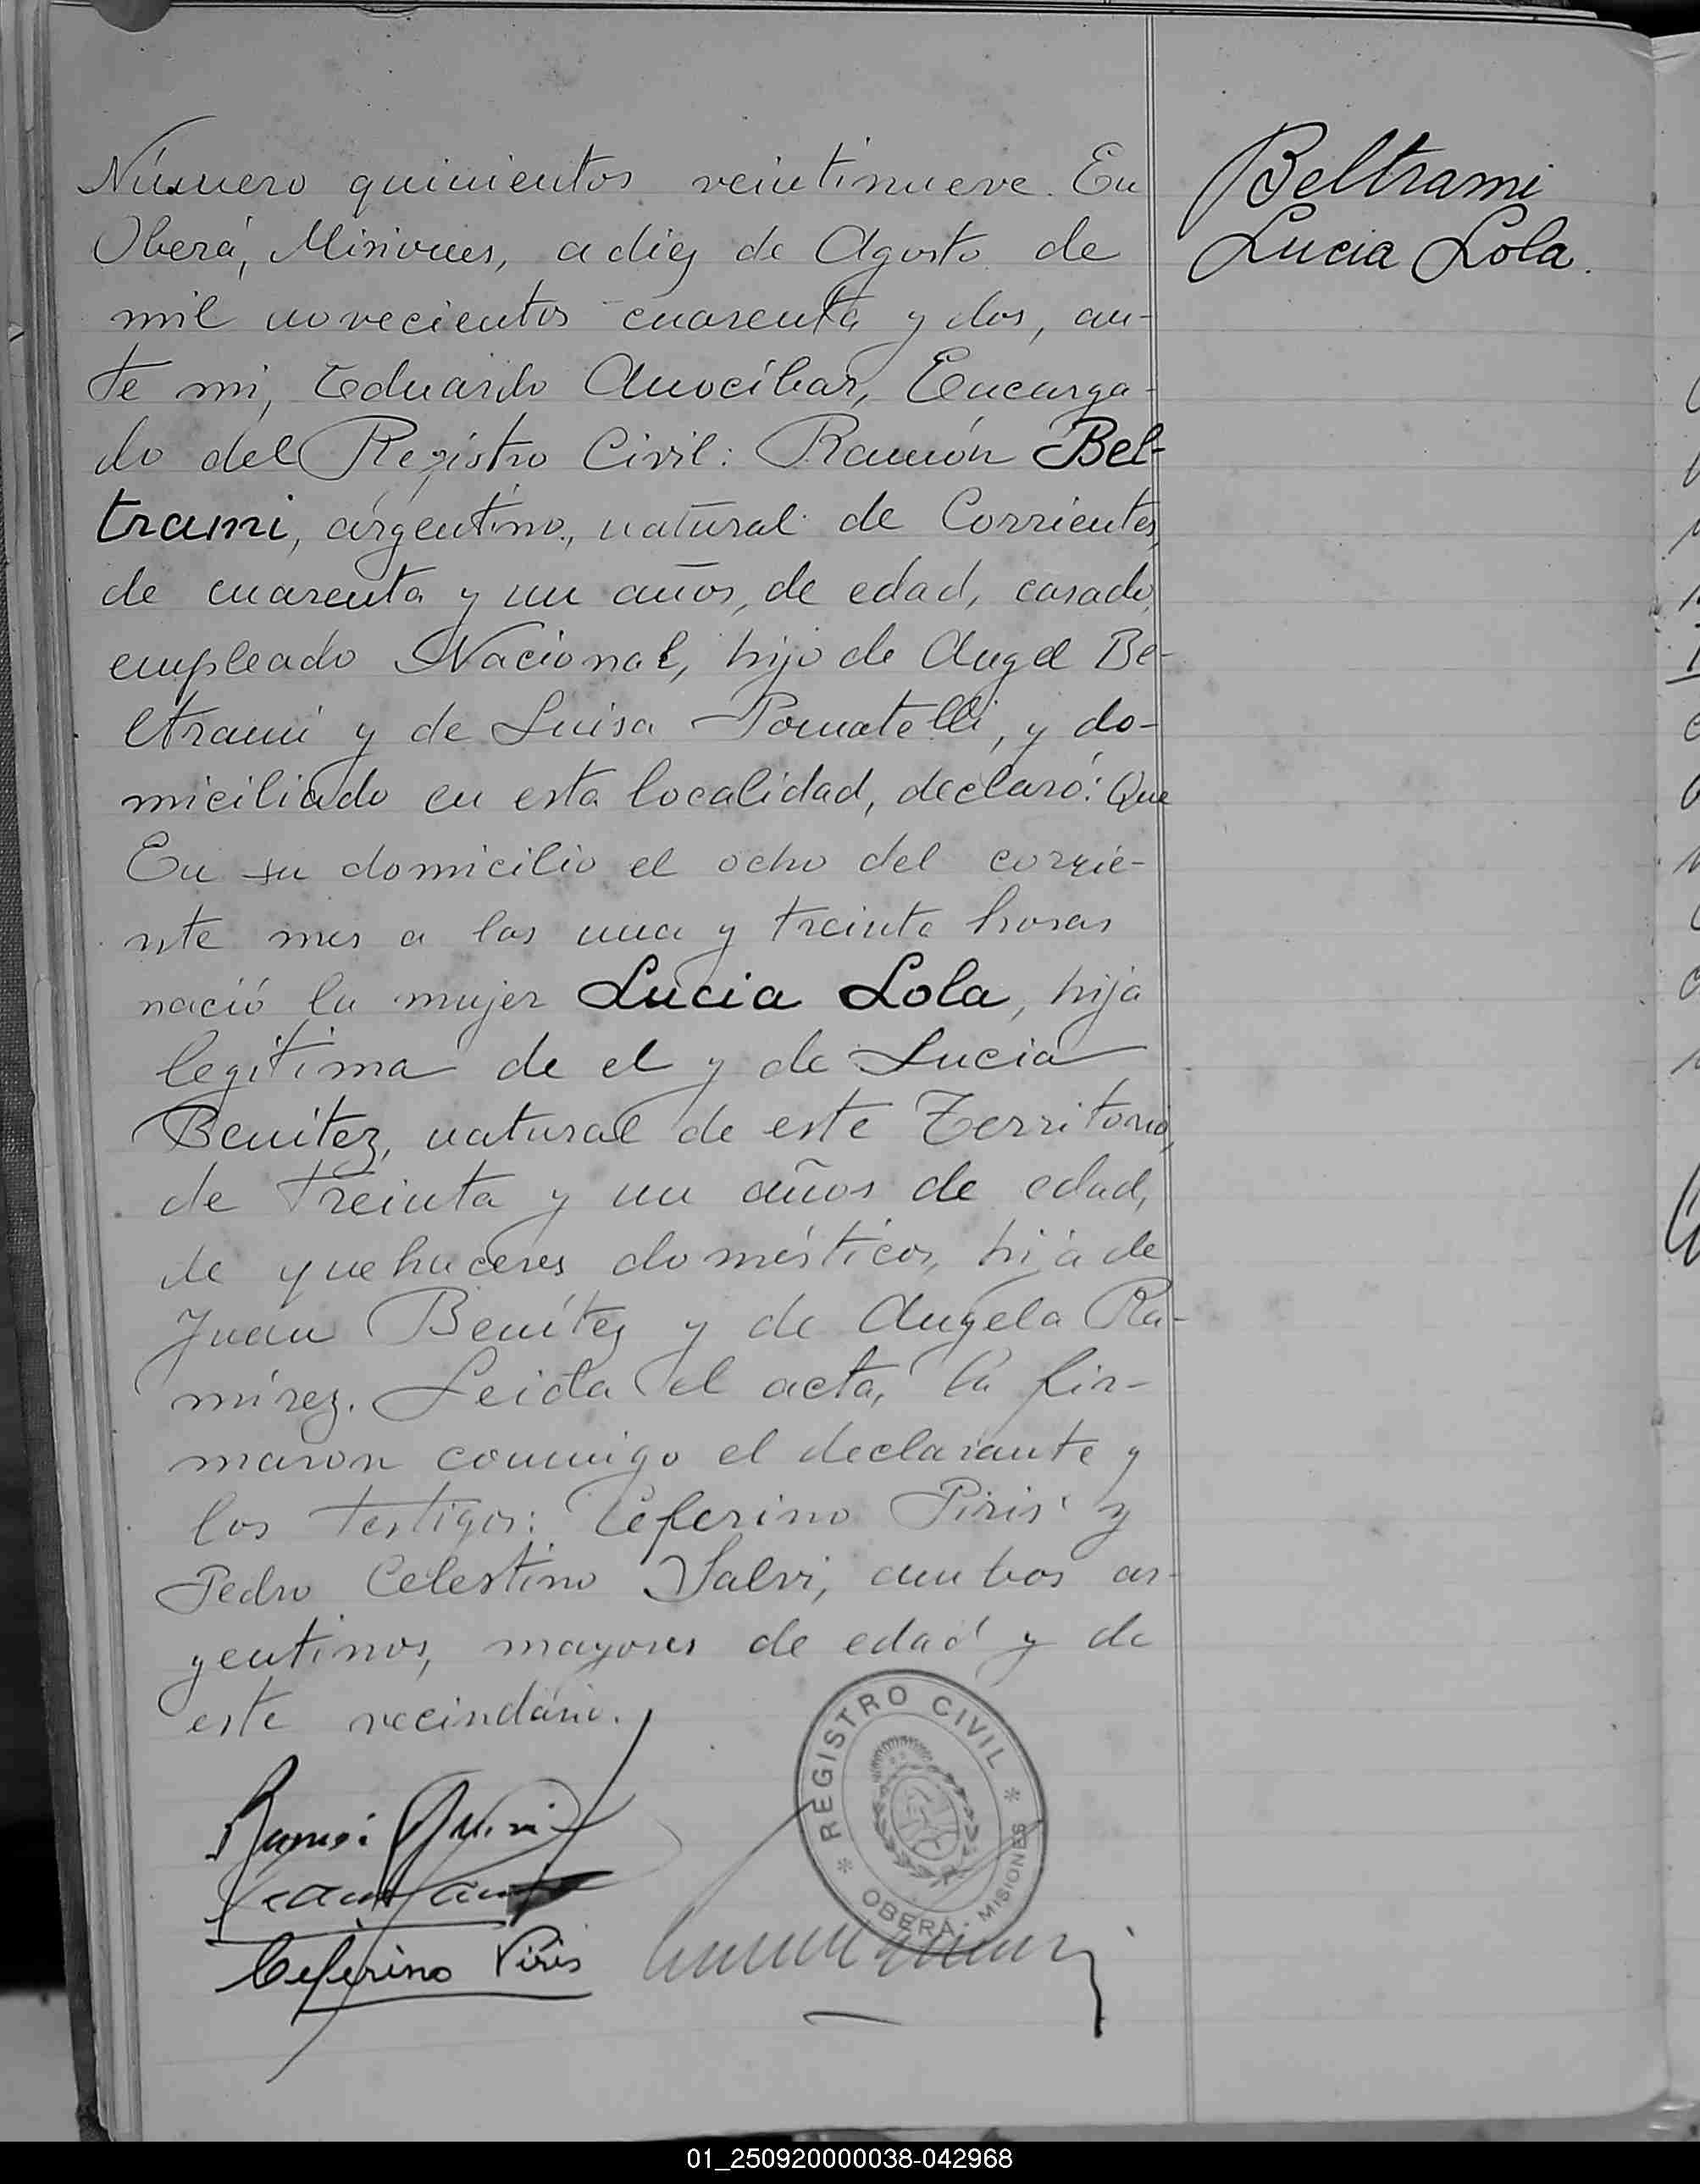 Número quinientos veintinueve. En
Oberá, Misiones, a diez de Agosto de
mil novecientos cuarenta y dos, an-
te mi, Eduardo Anocíbar, Encarga-
do del Registro Civil: Ramón Bel-
trami, argentino, natural de Corrientes,
de cuarenta y un años, de edad, casado,
empleado Nacional, hijo de Angel Be-
ltrami y de Luisa Pomatelli, y do-
miciliado en esta localidad, declaró: Que
En su domicilio el ocho del corrie-
nte mes a las una y treinta horas
nació la mujer Lucia Lola, hija
legítima de el y de Lucia
Benítez, natural de este Territorio,
de treinta y un años de edad,
de quehaceres domésticos, hija de
Juan Benítez y de Angela Ra-
mírez. Leida el acta, la fir-
maron conmigo el declarante y
los testigos: Ceferino Piris y
Pedro Celestino Salvi, ambos ar-
gentinos, mayores de edad y de
este vecindario.
Beltrami
Lucia Lola.
Ceferino Piris
REGISTRO CIVIL
OBERÁ - MISIONES
01_250920000038-042968